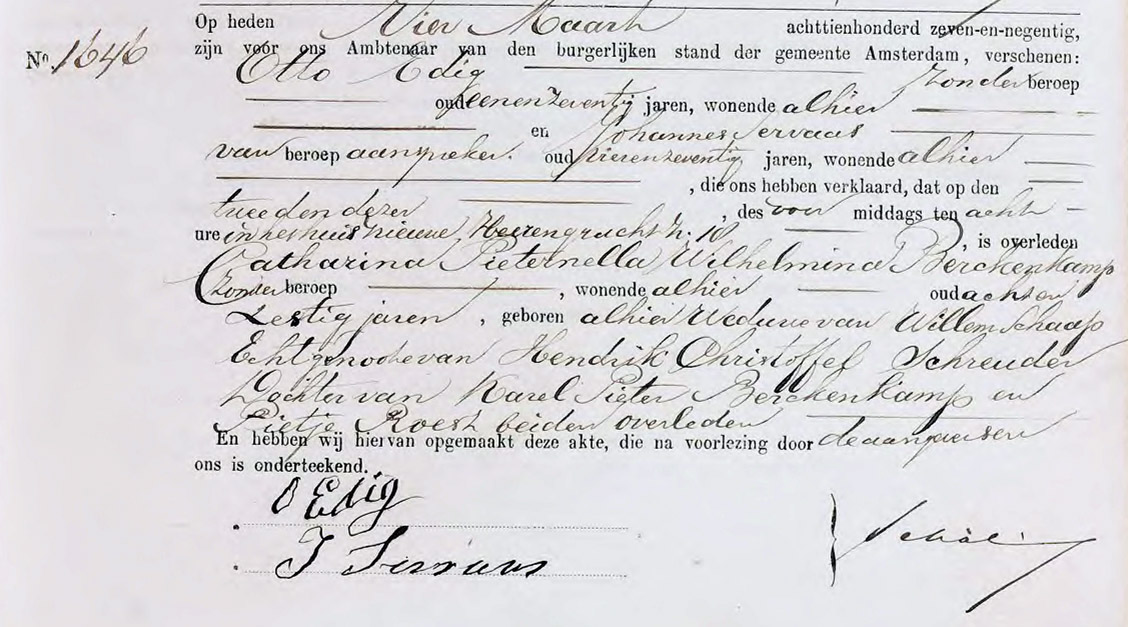 Op heden Vier Maart achttienhonderd zeven-en-negentig,
No. 1646 zijn voor ons Ambtenaar van den burgerlijken stand der gemeente Amsterdam, verschenen:
Otto Edig zonder beroep
oud eenenzeventig jaren, wonende alhier
en Johannes Servaas
van beroep aanspreker. oud vierenzeventig jaren, wonende alhier
, die ons hebben verklaard, dat op den
tweeden dezer , des voor middags ten acht
ure in het huis Nieuwe Heerengracht n. 18 , is overleden
Catharina Pieternella Wilhelmina Berckenkamp
zonder beroep , wonende alhier oud acht en
Zestig jaren , geboren alhier Weduwe van Willem Schaap
Echtgenoote van Hendrik Christoffel Schreuder
Dochter van Karel Pieter Berckenkamp en
Pietje Roest beiden overleden
En hebben wij hiervan opgemaakt deze akte, die na voorlezing door de aangevers en
ons is onderteekend.
O Edig
J Servaas